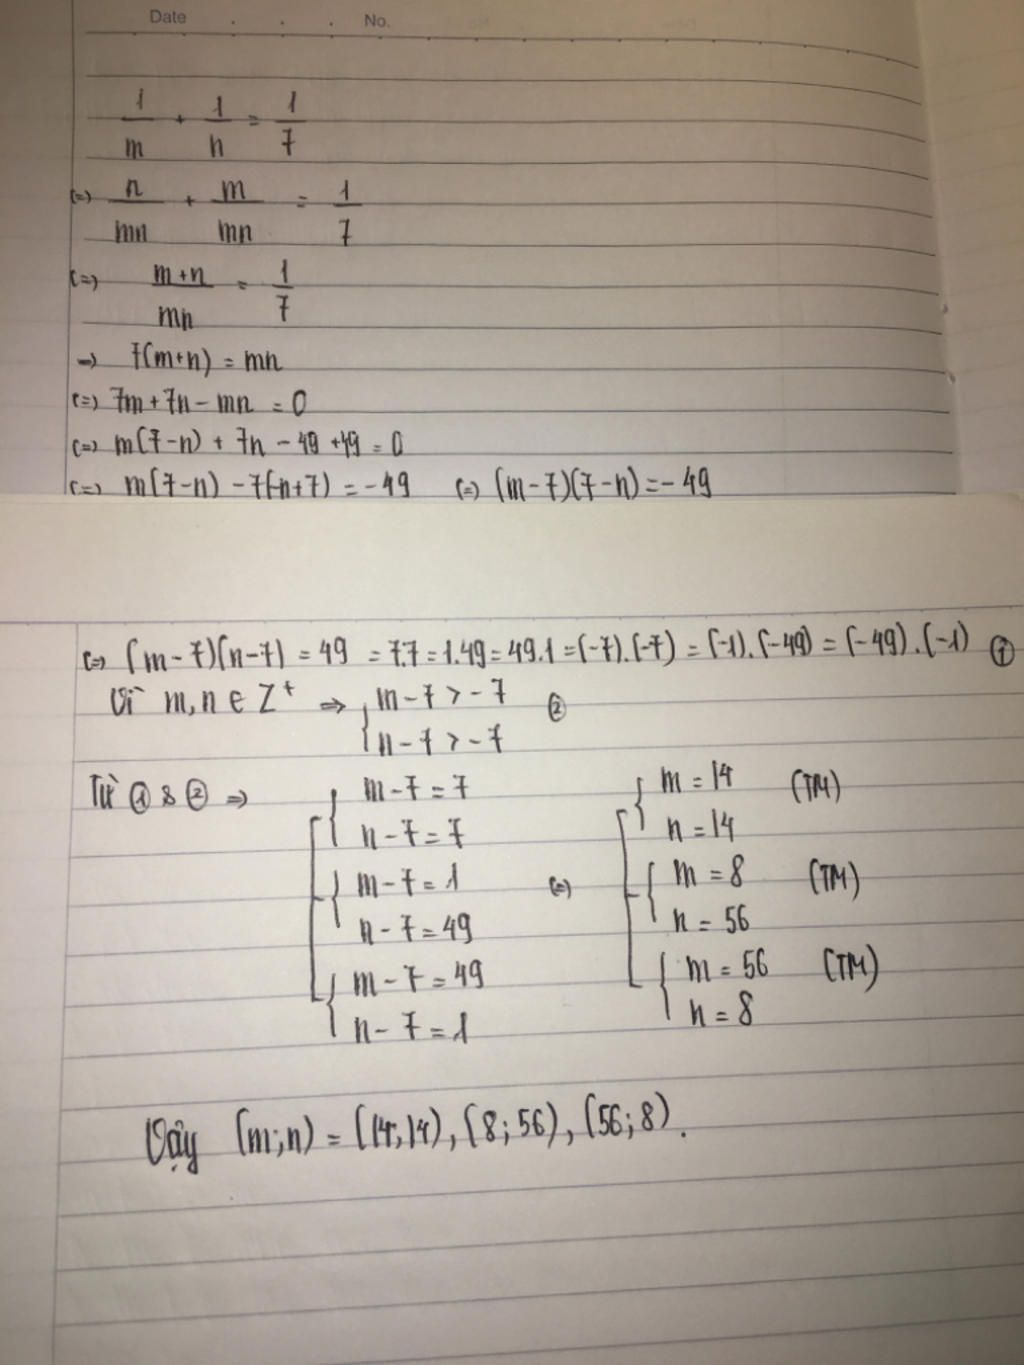 Date . . . No.
1/m + 1/n = 1/7
(=) n/mn + m/mn = 1/7
(=) m+n/mn = 1/7
→ 7(m+n) = mn
(=) 7m + 7n - mn = 0
(=) m(7-n) + 7n - 49 + 49 = 0
(=) m(7-n) - 7(-n+7) = -49 (=) (m-7)(7-n) = -49
(=) (m-7)(n-7) = 49 = 7.7 = 1.49 = 49.1 = (-7).(-7) = (-1).(-49) = (-49).(-1) ①
Vì m,n ∈ Z⁺ ⇒ { m-7 > -7 ②
n-7 > -7
Từ ① & ② ⇒ [ { m-7 = 7 [ { m = 14 (TM)
n-7 = 7 n = 14
{ m-7 = 1 (=) { m = 8 (TM)
n-7 = 49 n = 56
{ m-7 = 49 { m = 56 (TM)
n-7 = 1 n = 8
Vậy (m;n) = (14;14), (8;56), (56;8).